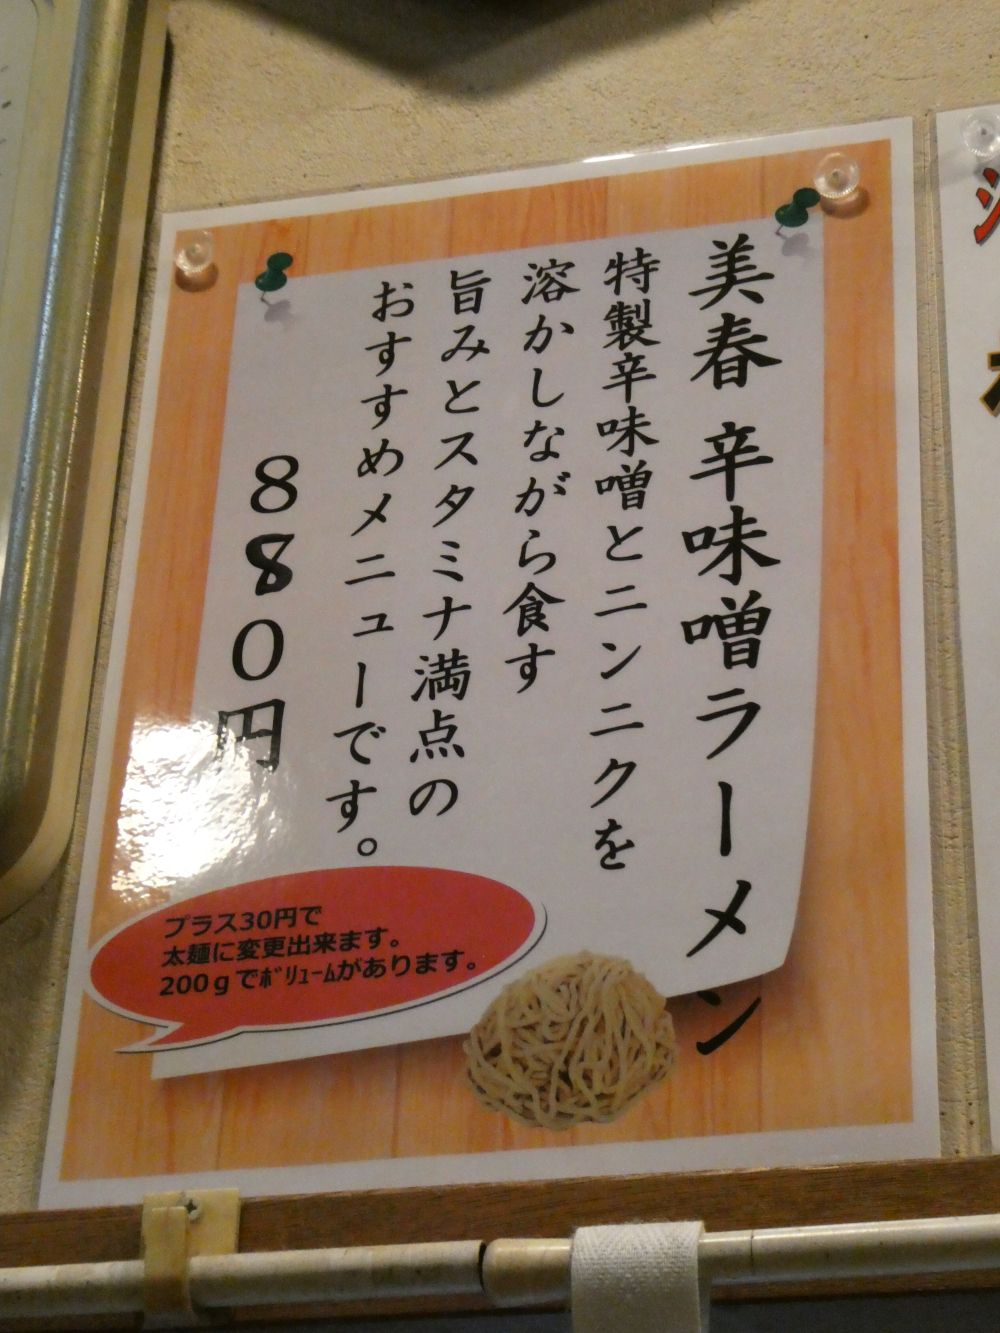 美春 辛味噌ラーメン
特製辛味噌とニンニクを
溶かしながら食す
旨みとスタミナ満点の
おすすめメニューです。
880円
プラス30円で
太麺に変更出来ます。
200gでﾎﾞﾘｭｰﾑがあります。